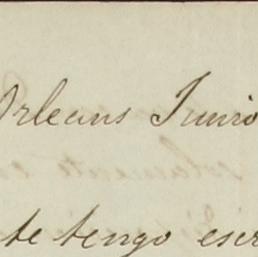 Orleans Junio
te tengo escr